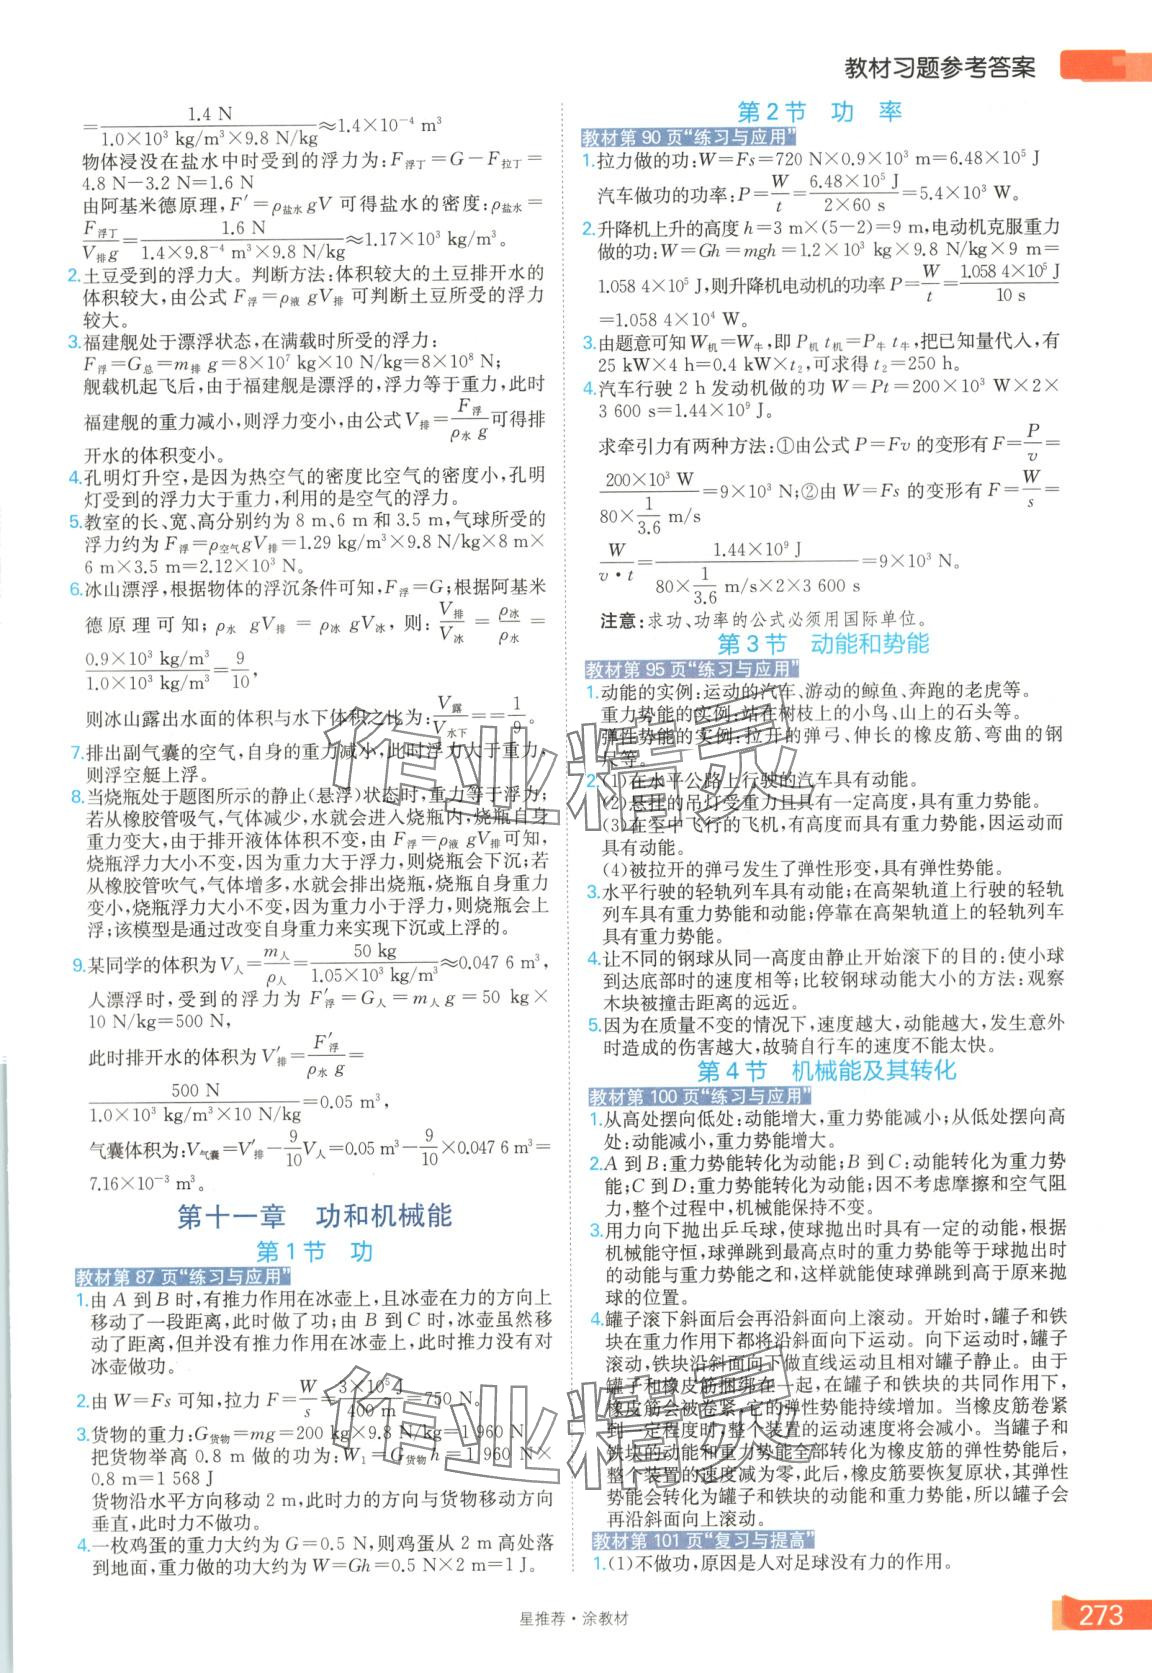 教材习题参考答案
=1.4 N/(1.0×10³ kg/m³×9.8 N/kg)≈1.4×10⁻⁴ m³
物体浸没在盐水中时受到的浮力为:F浮丁=G-F拉丁=
4.8 N-3.2 N=1.6 N
由阿基米德原理,F′=ρ盐水gV可得盐水的密度:ρ盐水=
F浮丁/(V排g)=1.6 N/(1.4×9.8⁻⁴ m³×9.8 N/kg)≈1.17×10³ kg/m³。
2.土豆受到的浮力大。判断方法:体积较大的土豆排开水的
体积较大,由公式 F浮=ρ液 gV排 可判断土豆所受的浮力
较大。
3.福建舰处于漂浮状态,在满载时所受的浮力:
F浮=G总=m排 g=8×10⁷ kg×10 N/kg=8×10⁸ N;
舰载机起飞后,由于福建舰是漂浮的,浮力等于重力,此时
福建舰的重力减小,则浮力变小,由公式V排=F浮/(ρ水 g)可得排
开水的体积变小。
4.孔明灯升空,是因为热空气的密度比空气的密度小,孔明
灯受到的浮力大于重力,利用的是空气的浮力。
5.教室的长、宽、高分别约为 8 m、6 m 和 3.5 m,气球所受的
浮力约为 F浮=ρ空气gV排=1.29 kg/m³×9.8 N/kg×8 m×
6 m×3.5 m=2.12×10³ N。
6.冰山漂浮,根据物体的浮沉条件可知,F浮=G;根据阿基米
德原理可知;ρ水 gV排 = ρ冰 gV冰,则:V排/V冰=ρ冰/ρ水=
0.9×10³ kg/m³/(1.0×10³ kg/m³)=9/10,
则冰山露出水面的体积与水下体积之比为:V露/V水下==1/9。
7.排出副气囊的空气,自身的重力减小,此时浮力大于重力,
则浮空艇上浮。
8.当烧瓶处于题图所示的静止(悬浮)状态时,重力等于浮力;
若从橡胶管吸气,气体减少,水就会进入烧瓶内,烧瓶自身
重力变大,由于排开液体体积不变,由 F浮=ρ液gV排可知,
烧瓶浮力大小不变,因为重力大于浮力,则烧瓶会下沉;若
从橡胶管吹气,气体增多,水就会排出烧瓶,烧瓶自身重力
变小,烧瓶浮力大小不变,因为重力小于浮力,则烧瓶会上
浮;该模型是通过改变自身重力来实现下沉或上浮的。
9.某同学的体积为V人=m人/ρ人=50 kg/(1.05×10³ kg/m³)≈0.047 6 m³,
人漂浮时,受到的浮力为 F′浮=G人=m人 g=50 kg×
10 N/kg=500 N,
此时排开水的体积为V′排=F′浮/(ρ水 g)=
500 N/(1.0×10³ kg/m³×10 N/kg)=0.05 m³,
气囊体积为:V气囊=V′排-9/10V人=0.05 m³-9/10×0.047 6 m³=
7.16×10⁻³ m³。
第十一章 功和机械能
第1节 功
教材第 87 页“练习与应用”
1.由 A 到 B 时,有推力作用在冰壶上,且冰壶在力的方向上
移动了一段距离,此时做了功;由 B 到 C 时,冰壶虽然移
动了距离,但并没有推力作用在冰壶上,此时推力没有对
冰壶做功。
2.由 W=Fs 可知,拉力 F=W/s=3×10⁵ J/400 m=750 N。
3.货物的重力:G货物=mg=200 kg×9.8 N/kg=1 960 N
把货物举高 0.8 m 做的功为:W₁=G货物h=1 960 N×
0.8 m=1 568 J
货物沿水平方向移动 2 m,此时力的方向与货物移动方向
垂直,此时力不做功。
4.一枚鸡蛋的重力大约为 G=0.5 N,则鸡蛋从 2 m 高处落
到地面,重力做的功大约为 W=Gh=0.5 N×2 m=1 J。
第2节 功 率
教材第 90 页“练习与应用”
1.拉力做的功:W=Fs=720 N×0.9×10³ m=6.48×10⁵ J
汽车做功的功率:P=W/t=6.48×10⁵ J/(2×60 s)=5.4×10³ W。
2.升降机上升的高度 h=3 m×(5-2)=9 m,电动机克服重力
做的功:W=Gh=mgh=1.2×10³ kg×9.8 N/kg×9 m=
1.058 4×10⁵ J,则升降机电动机的功率 P=W/t=1.058 4×10⁵ J/10 s
=1.058 4×10⁴ W。
3.由题意可知 W机=W牛,即 P机 t机=P牛 t牛,把已知量代入,有
25 kW×4 h=0.4 kW×t₂,可求得 t₂=250 h。
4.汽车行驶 2 h 发动机做的功 W=Pt=200×10³ W×2×
3 600 s=1.44×10⁹ J。
求牵引力有两种方法:①由公式 P=Fv 的变形有 F=P/v=
200×10³ W/(80×1/3.6 m/s)=9×10³ N;②由 W=Fs 的变形有 F=W/s=
W/(v·t)=1.44×10⁹ J/(80×1/3.6 m/s×2×3 600 s)=9×10³ N。
注意:求功、功率的公式必须用国际单位。
第3节 动能和势能
教材第 95 页“练习与应用”
1.动能的实例:运动的汽车、游动的鲸鱼、奔跑的老虎等。
重力势能的实例:站在树枝上的小鸟、山上的石头等。
弹性势能的实例:拉开的弹弓、伸长的橡皮筋、弯曲的钢
尺等。
2.(1)在水平公路上行驶的汽车具有动能。
(2)悬挂的吊灯受重力且具有一定高度,具有重力势能。
(3)在空中飞行的飞机,有高度而具有重力势能,因运动而
具有动能。
(4)被拉开的弹弓发生了弹性形变,具有弹性势能。
3.水平行驶的轻轨列车具有动能;在高架轨道上行驶的轻轨
列车具有重力势能和动能;停靠在高架轨道上的轻轨列车
具有重力势能。
4.让不同的钢球从同一高度由静止开始滚下的目的:使小球
到达底部时的速度相等;比较钢球动能大小的方法:观察
木块被撞击距离的远近。
5.因为在质量不变的情况下,速度越大,动能越大,发生意外
时造成的伤害越大,故骑自行车的速度不能太快。
第4节 机械能及其转化
教材第 100 页“练习与应用”
1.从高处摆向低处:动能增大,重力势能减小;从低处摆向高
处:动能减小,重力势能增大。
2.A 到 B:重力势能转化为动能;B 到 C:动能转化为重力势
能;C 到 D:重力势能转化为动能;因不考虑摩擦和空气阻
力,整个过程中,机械能保持不变。
3.用力向下抛出乒乓球,使球抛出时具有一定的动能,根据
机械能守恒,球弹跳到最高点时的重力势能等于球抛出时
的动能与重力势能之和,这样就能使球弹跳到高于原来抛
球的位置。
4.罐子滚下斜面后会再沿斜面向上滚动。开始时,罐子和铁
块在重力作用下都将沿斜面向下运动。向下运动时,罐子
滚动,铁块沿斜面向下做直线运动且相对罐子静止。由于
罐子和橡皮筋捆绑在一起,在罐子和铁块的共同作用下,
橡皮筋会被卷紧,它的弹性势能持续增加。当橡皮筋卷紧
到一定程度时,整个装置的运动速度将会减小。当罐子和
铁块的动能和重力势能全部转化为橡皮筋的弹性势能后,
整个装置的速度减为零,此后,橡皮筋要恢复原状,其弹性
势能会转化为罐子和铁块的动能和重力势能,所以罐子会
再沿斜面向上滚动。
教材第 101 页“复习与提高”
1.(1)不做功,原因是人对足球没有力的作用。
作业精灵
作业精灵
星推荐·涂教材
273